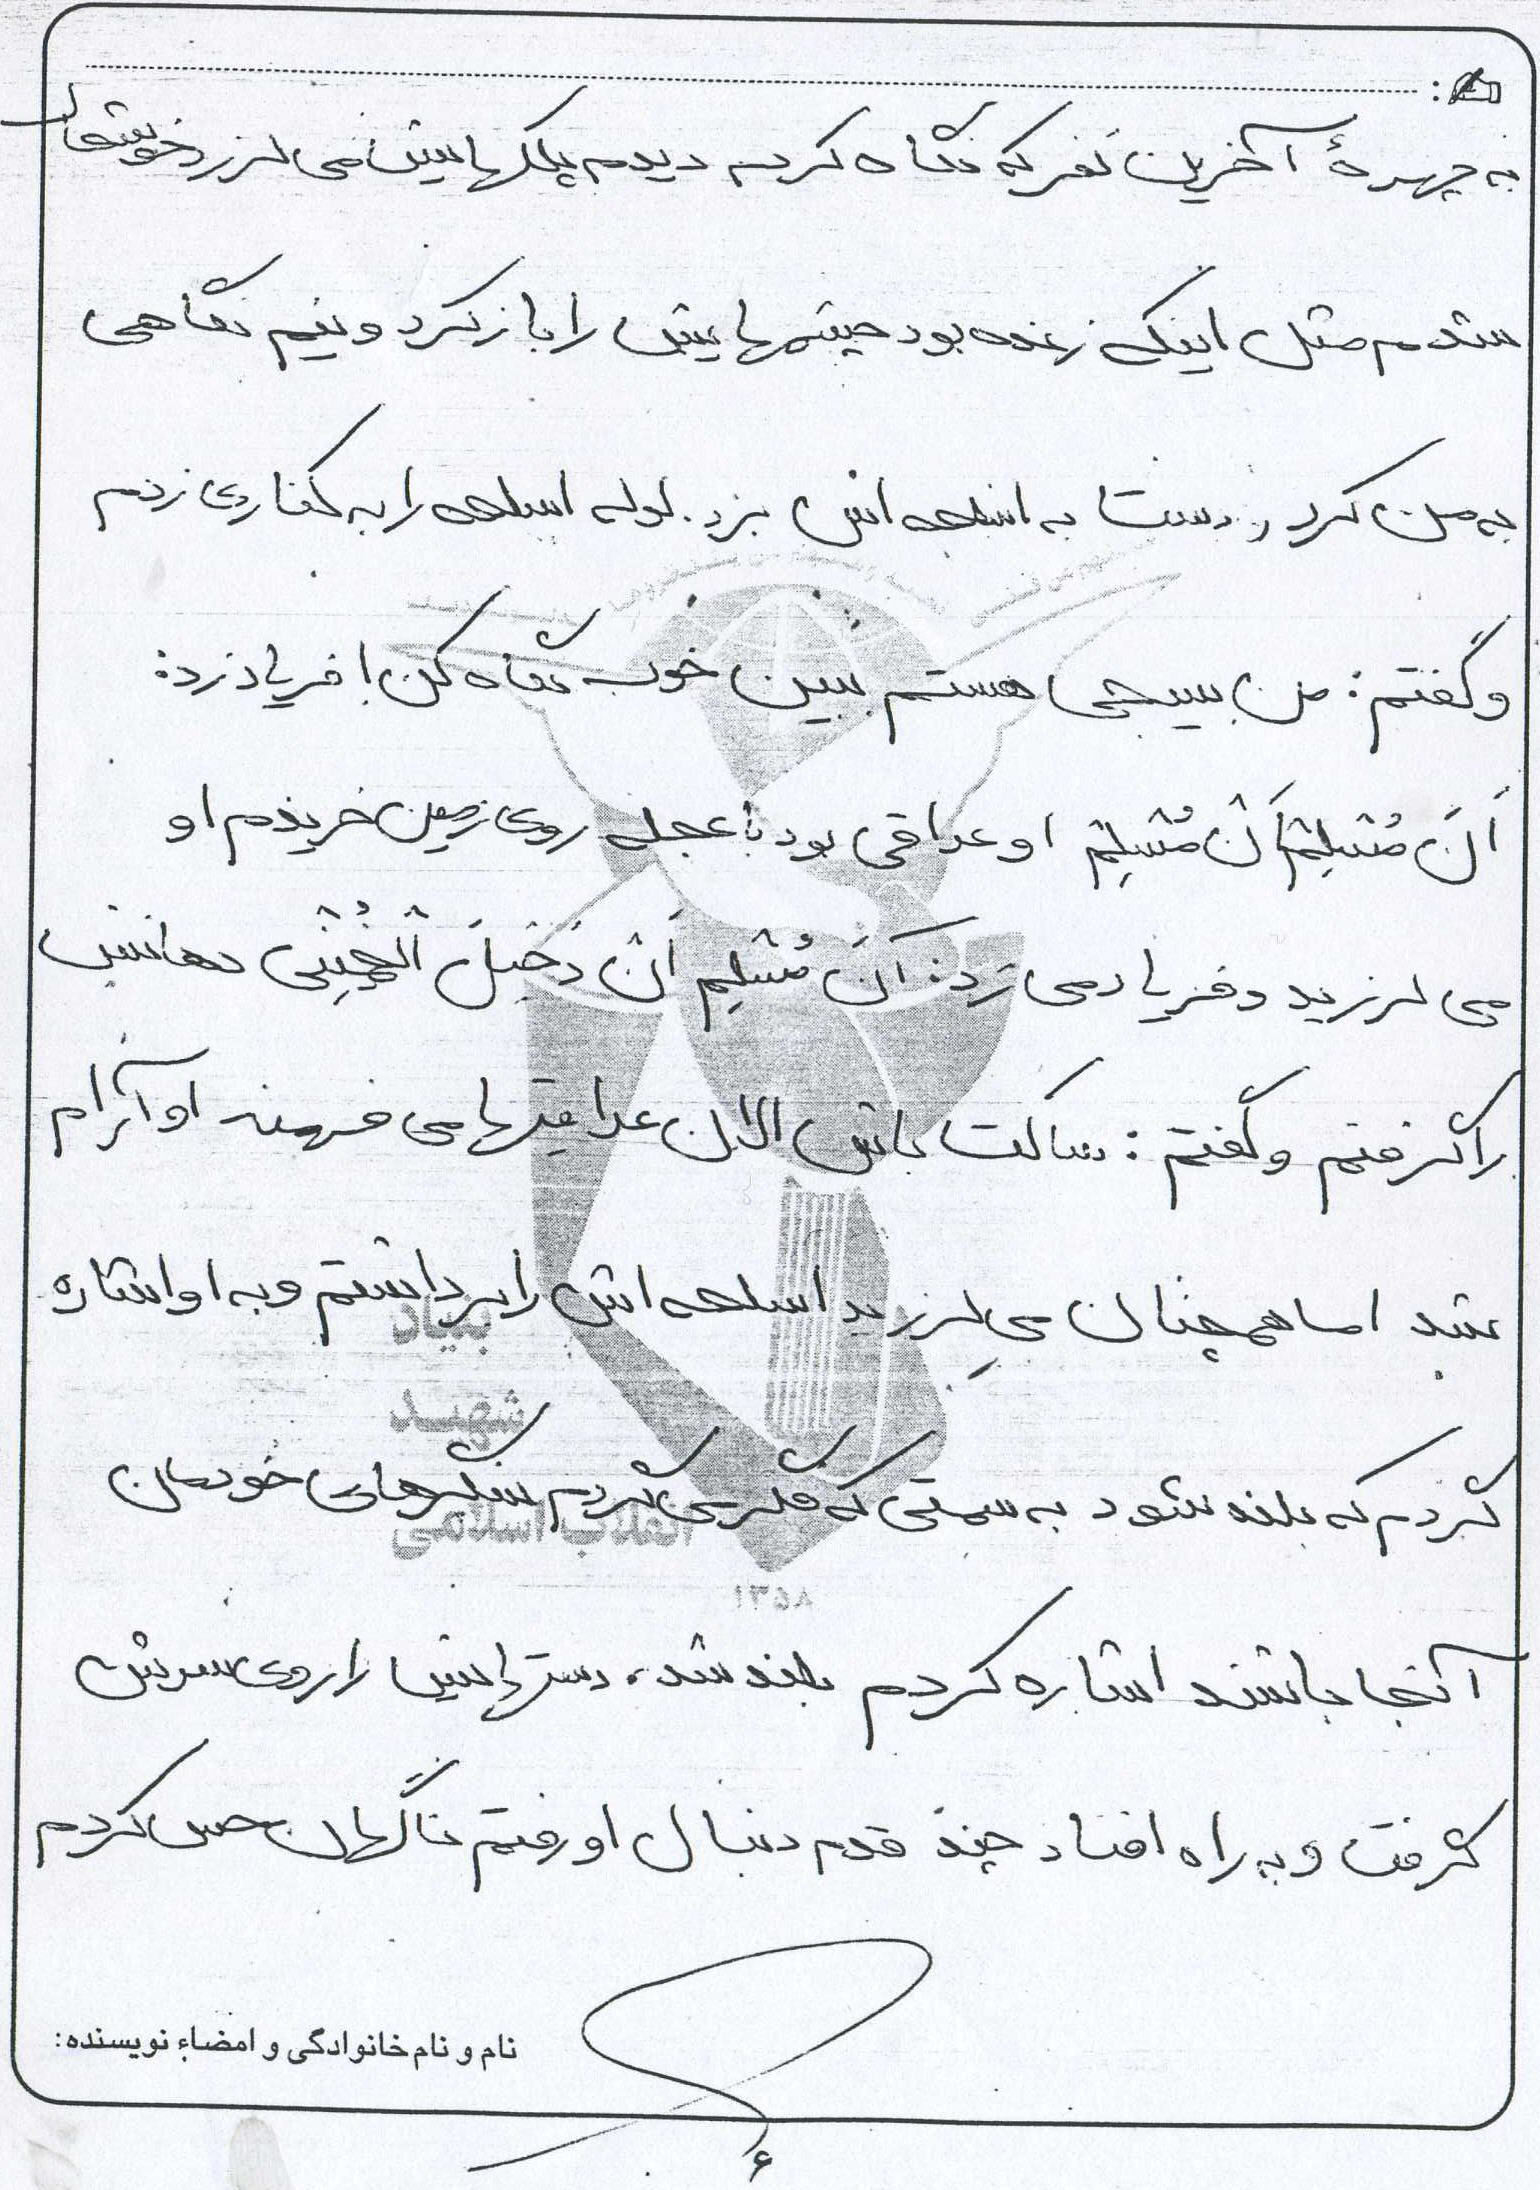 به چهرهٔ آخرین نفر که نگاه کردم دیدم پلکهایش می لرزد خوشحال
شدم مثل اینکه زنده بود چشمهایش را باز کرد و نیم نگاهی
به من کرد و دست به اسلحه اش بزد. لوله اسلحه را به کناری زدم
و گفتم: من بسیجی هستم ببین خوب نگاه کن! فریاد زد:
اَنَ مُسْلِمْ اَنَ مُسْلِمْ او عراقی بود با عجله روی زمین خریدم او
می لرزید و فریاد می زد: اَنَ مُسْلِم اَنَ دَخیلَ الْخُمِیْنِی دهانش
را گرفتم و گفتم: ساکت باش الان عراقیها می فهمند او آرام
شد اما همچنان می لرزید اسلحه اش را برداشتم و به او اشاره
کردم که بلند شود به سمتی که فکر می کردم سنگرهای خودمان
آنجا باشند اشاره کردم بلند شد، دستهایش را روی سرش
گرفت و به راه افتاد چند قدم دنبال او رفتم ناگهان حس کردم
بنیاد
شهید
انقلاب اسلامی
۱۳۵۸
نام و نام خانوادگی و امضاء نویسنده:
۶